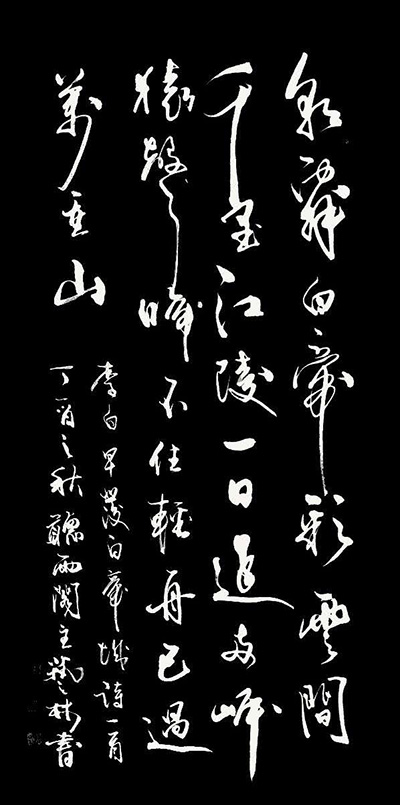 朝辭白帝彩雲間
千里江陵一日還兩岸
猿聲啼不住輕舟已過
萬重山
李白早發白帝城詩一首
丁酉之秋聽雨閣主書